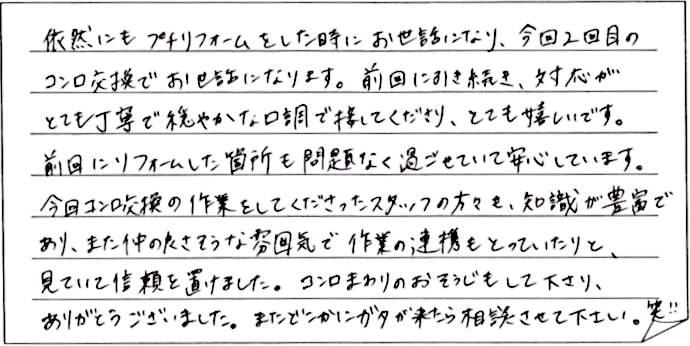 依然にもプチリフォームをした時にお世話になり、今回2回目の
コンロ交換でお世話になります。前回に引き続き、対応が
とても丁寧で穏やかな口調で接してくださり、とても嬉しいです。
前回にリフォームした箇所も問題なく過ごせていて安心しています。
今回コンロ交換の作業をしてくださったスタッフの方々も、知識が豊富で
あり、また仲の良さそうな雰囲気で作業の連携もとっていたりと、
見ていて信頼を置けました。コンロまわりのおそうじもして下さり、
ありがとうございました。またどこかにガタが来たら相談させて下さい。笑!!